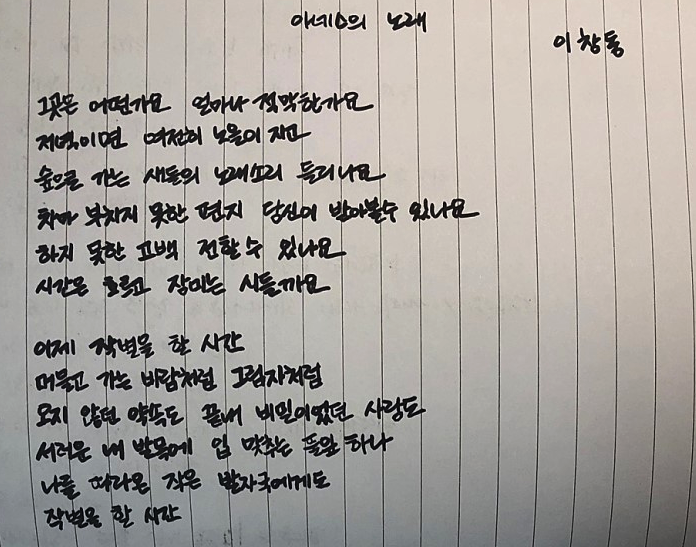 아네스의 노래
이창동
그곳은 어떤가요 얼마나 적막한가요
저녁이면 여전히 노을이 지고
숲으로 가는 새들의 노래소리 들리나요
차마 부치지 못한 편지 당신이 받아볼수 있나요
하지 못한 고백 전할 수 있나요
시간은 흐르고 장미는 시들까요
이제 작별을 할 시간
머물고 가는 바람처럼 그림자처럼
오지 않던 약속도 끝내 비밀이었던 사랑도
서러운 내 발목에 입 맞추는 풀잎 하나
나를 따라온 작은 발자국에게도
작별을 할 시간